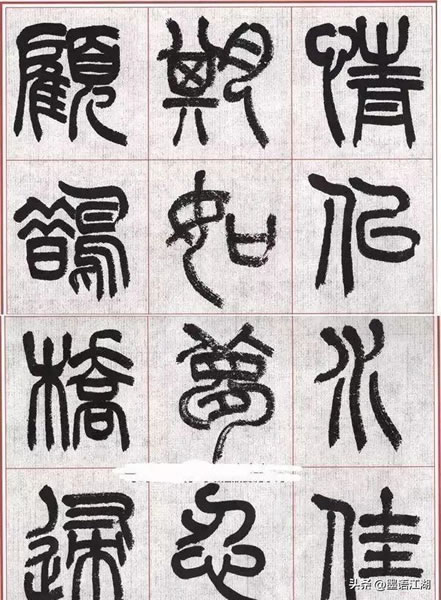 情似水佳
期如夢忍
顧鵲橋歸
头条 @墨语江湖